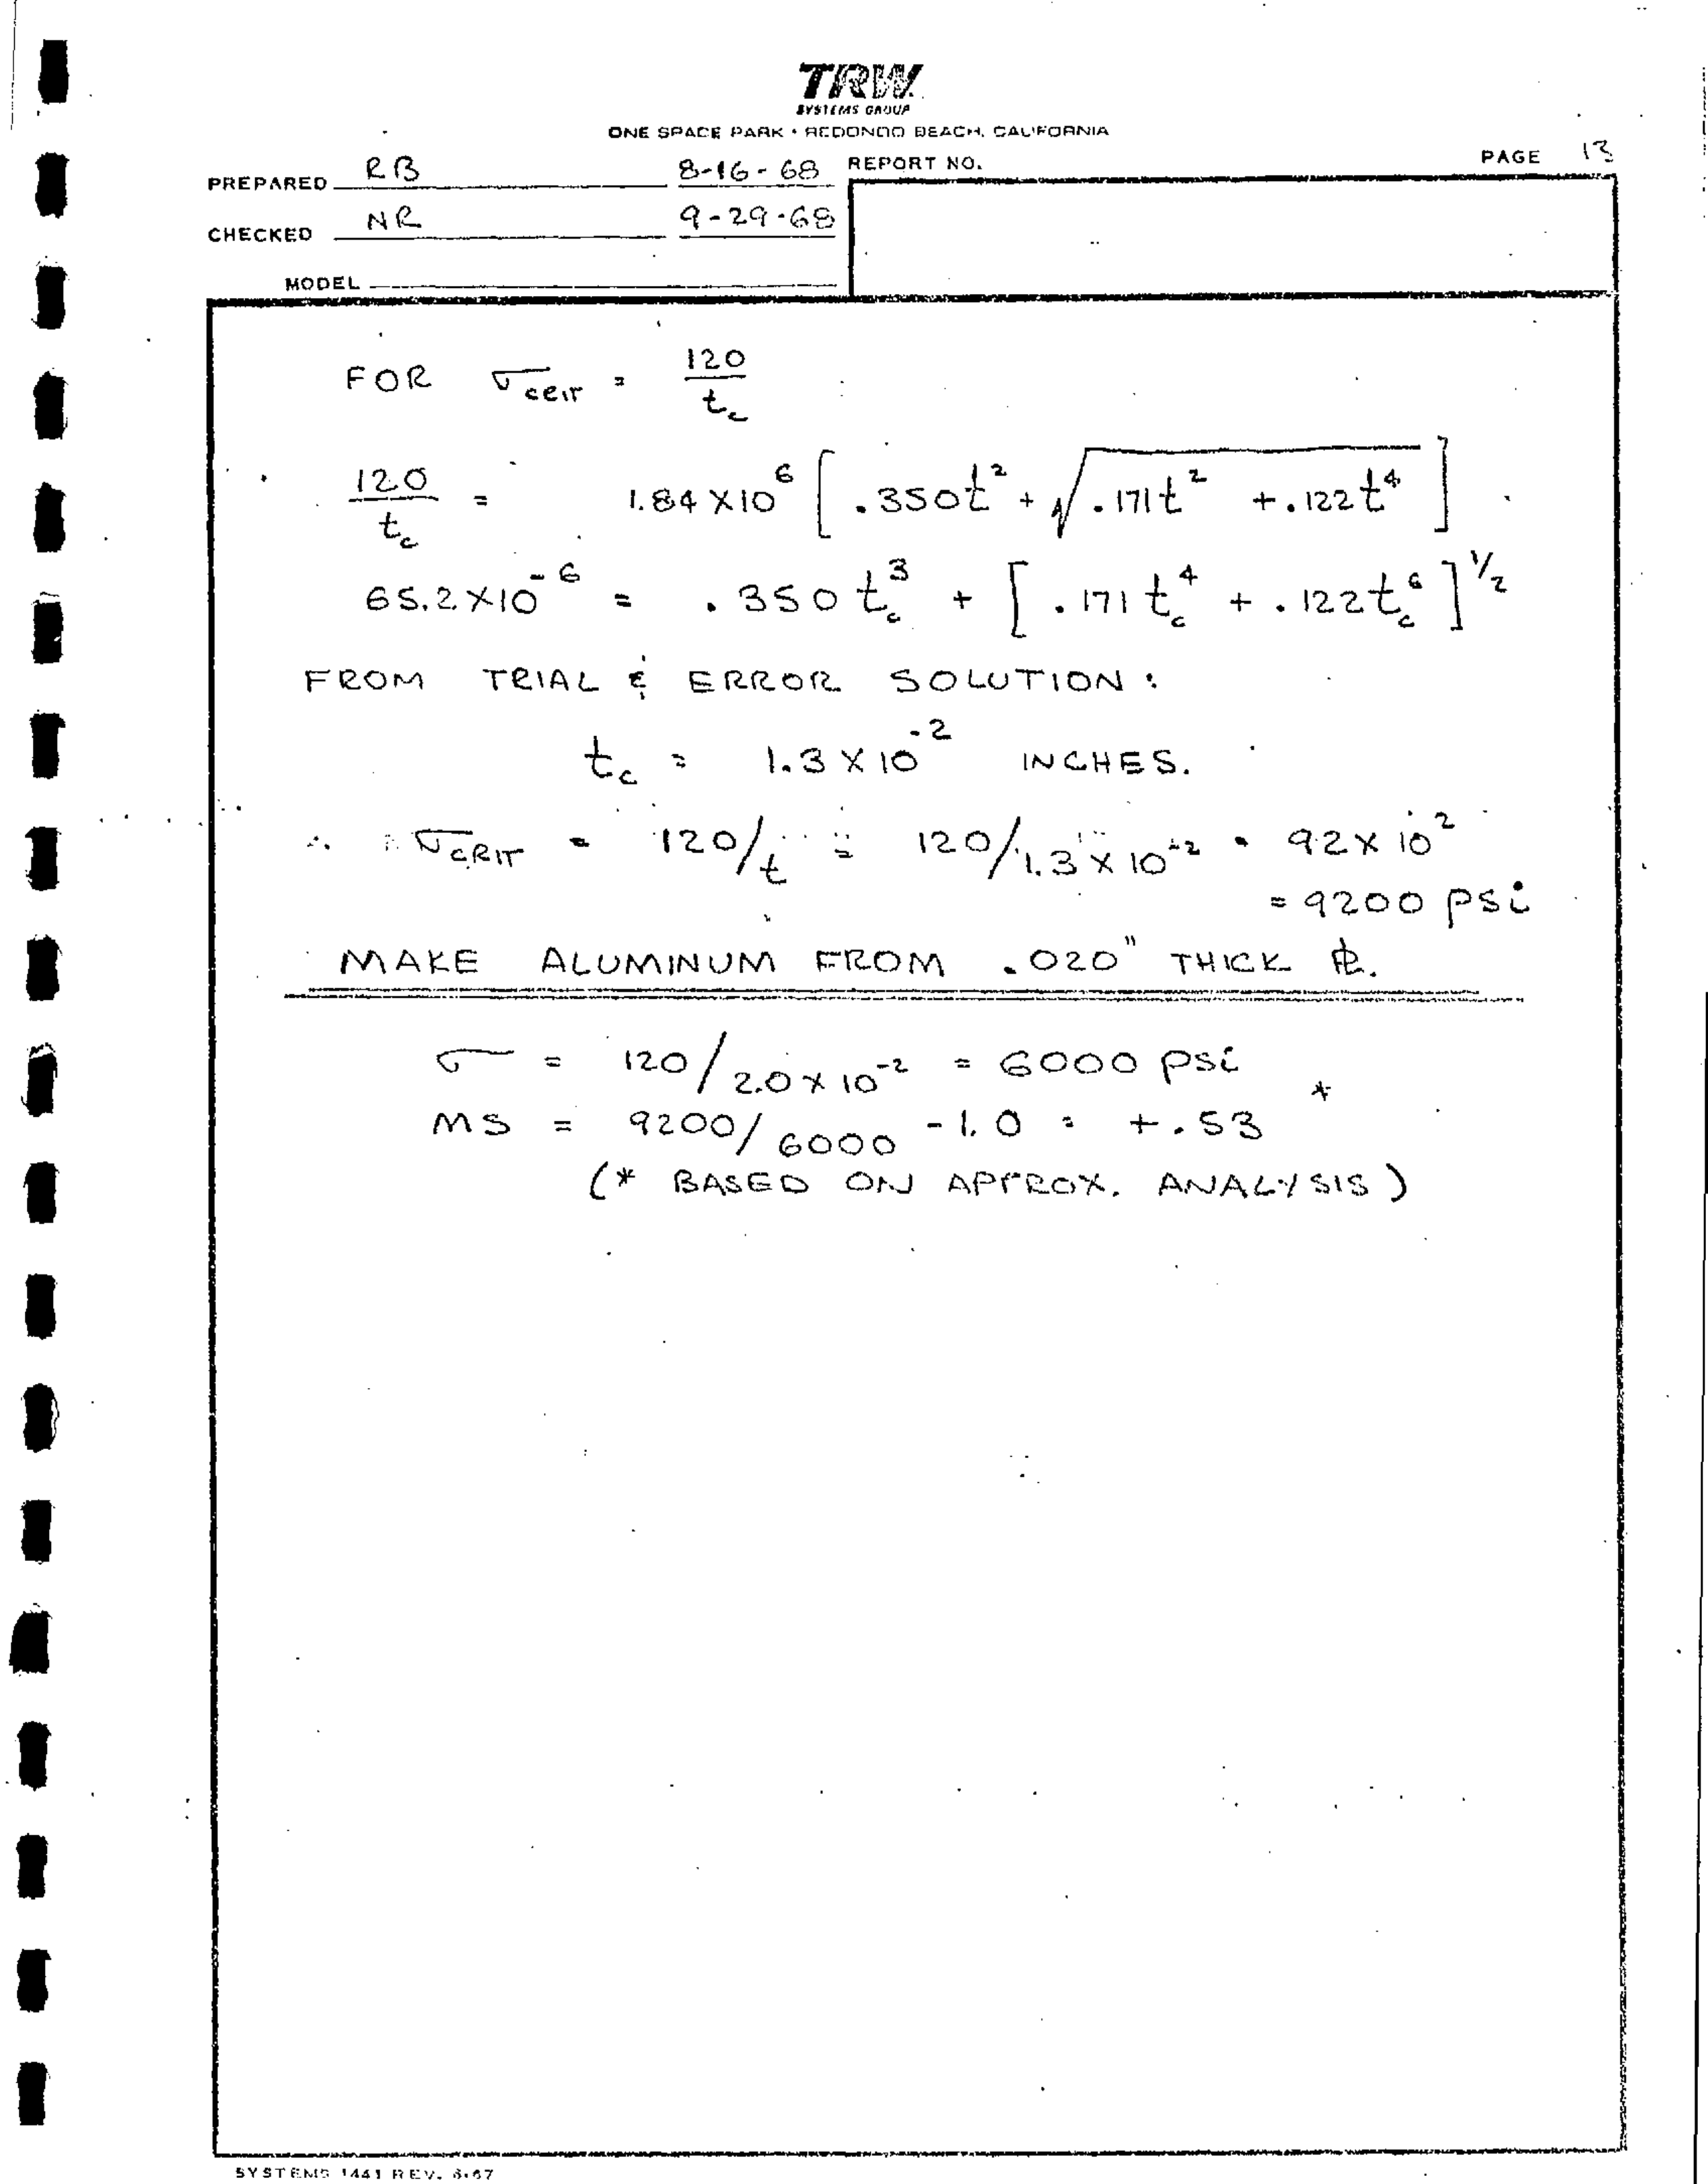 TRW
SYSTEMS GROUP
ONE SPACE PARK • REDONDO BEACH, CALIFORNIA
PREPARED RB 8-16-68 REPORT NO. PAGE 13
CHECKED NR 9-29-68
MODEL
FOR σCRIT = 120/tc
120/tc = 1.84 X 10^6 [ .350t^2 + √(.171t^2 + .122t^4) ]
65.2X10^-6 = .350 tc^3 + [ .171 tc^4 + .122tc^6 ]^1/2
FROM TRIAL & ERROR SOLUTION:
tc = 1.3 X 10^-2 INCHES.
∴ σCRIT = 120/t = 120/1.3 X 10^-2 = 92 X 10^2
= 9200 psi
MAKE ALUMINUM FROM .020" THICK ℙL.
σ = 120/2.0 X 10^-2 = 6000 psi
MS = 9200/6000 -1.0 = +.53 *
(* BASED ON APPROX. ANALYSIS)
SYSTEMS 1441 REV. 8-67